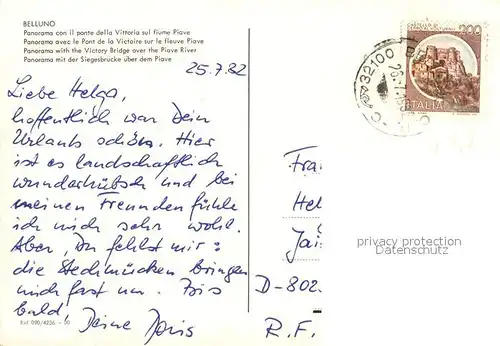 BELLUNO
Panorama con il ponte della Vittoria sul fiume Piave
Panorama avec le Pont de la Victoire sur le fleuve Piave
Panorama with the Victory Bridge over the Piave River
Panorama mit der Siegesbrucke über dem Piave
25.7.82
Liebe Helga,
hoffentlich war Dein
Urlaub schön. Hier
ist es landschaftlich
wunderhübsch und bei
meinen Freunden fühle
ich mich sehr wohl.
Aber, Du fehlst mir:
die Stechmücken bringen
mich fast um. Bis
bald, Deine Doris
Rif. 090/4236 - 00
32100
200
ITALIA
Frau
Hel
Jai
D-802
R.F.
privacy protection
Datenschutz